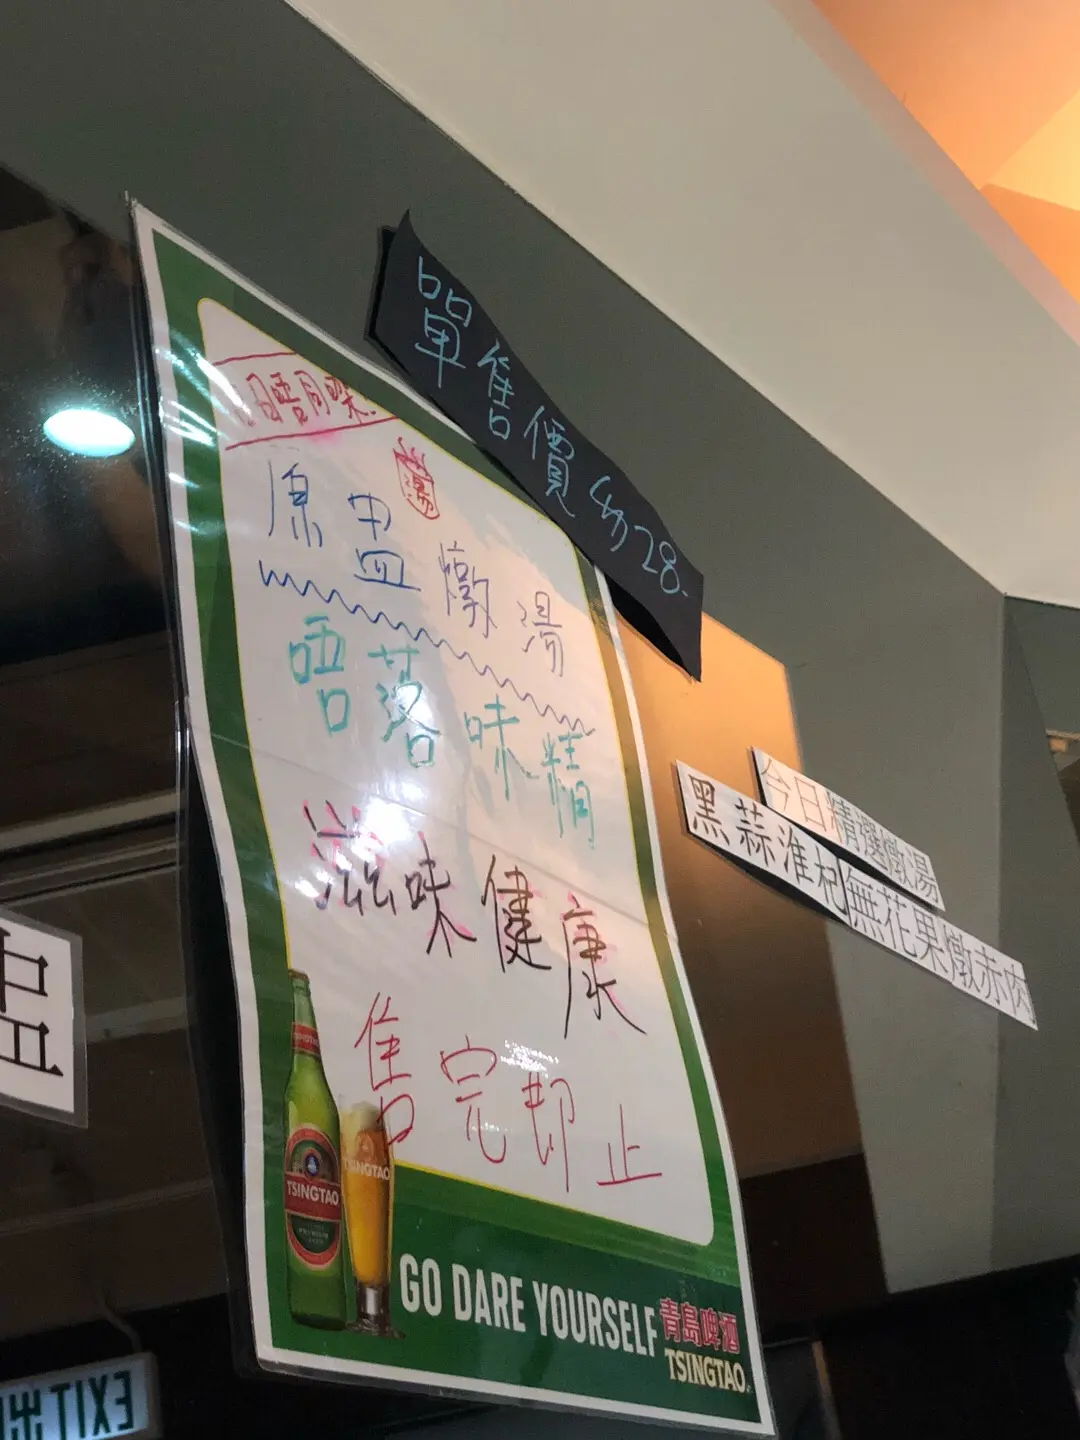 單售價$28.
日唔同㗎.
湯
原盅燉湯
唔落味精
滋味健康
售完即止
TSINGTAO
TSINGTAO
GO DARE YOURSELF
青島啤酒
TSINGTAO
今日精選燉湯
黑蒜淮杞無花果燉赤肉
盅
EXIT 出